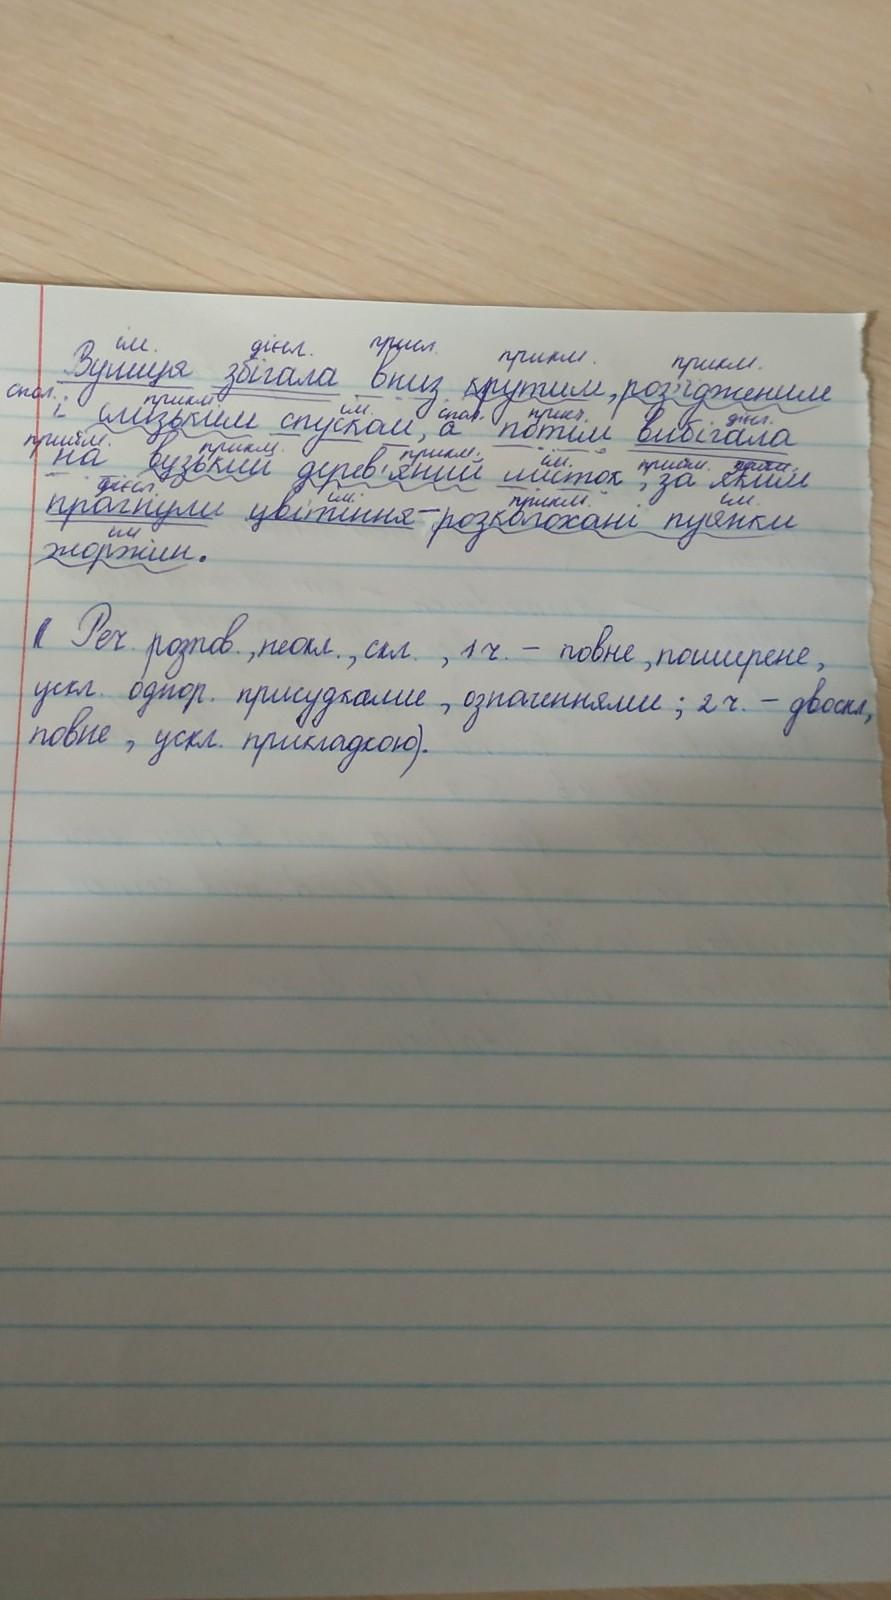 ім. дієсл. присл. прикм. прикм.
Вулиця збігала вниз крутим, роз'їдженим
спол. прикм. ім. спол. присл. дієсл.
і слизьким спуском, а потім вибігала
прийм. прикм. прикм. ім. прийм.
на вузький дерев'яний місток, за яким
дієсл. ім. прикм. ім.
прагнули цвітіння – розкалохані пуянки
ім
жоржин.
( Реч. розпов., неокл., скл., 1 ч. – повне, поширене,
ускл. однор. присудками, означеннями; 2 ч. – двоскл,
повне, ускл. прикладкою).